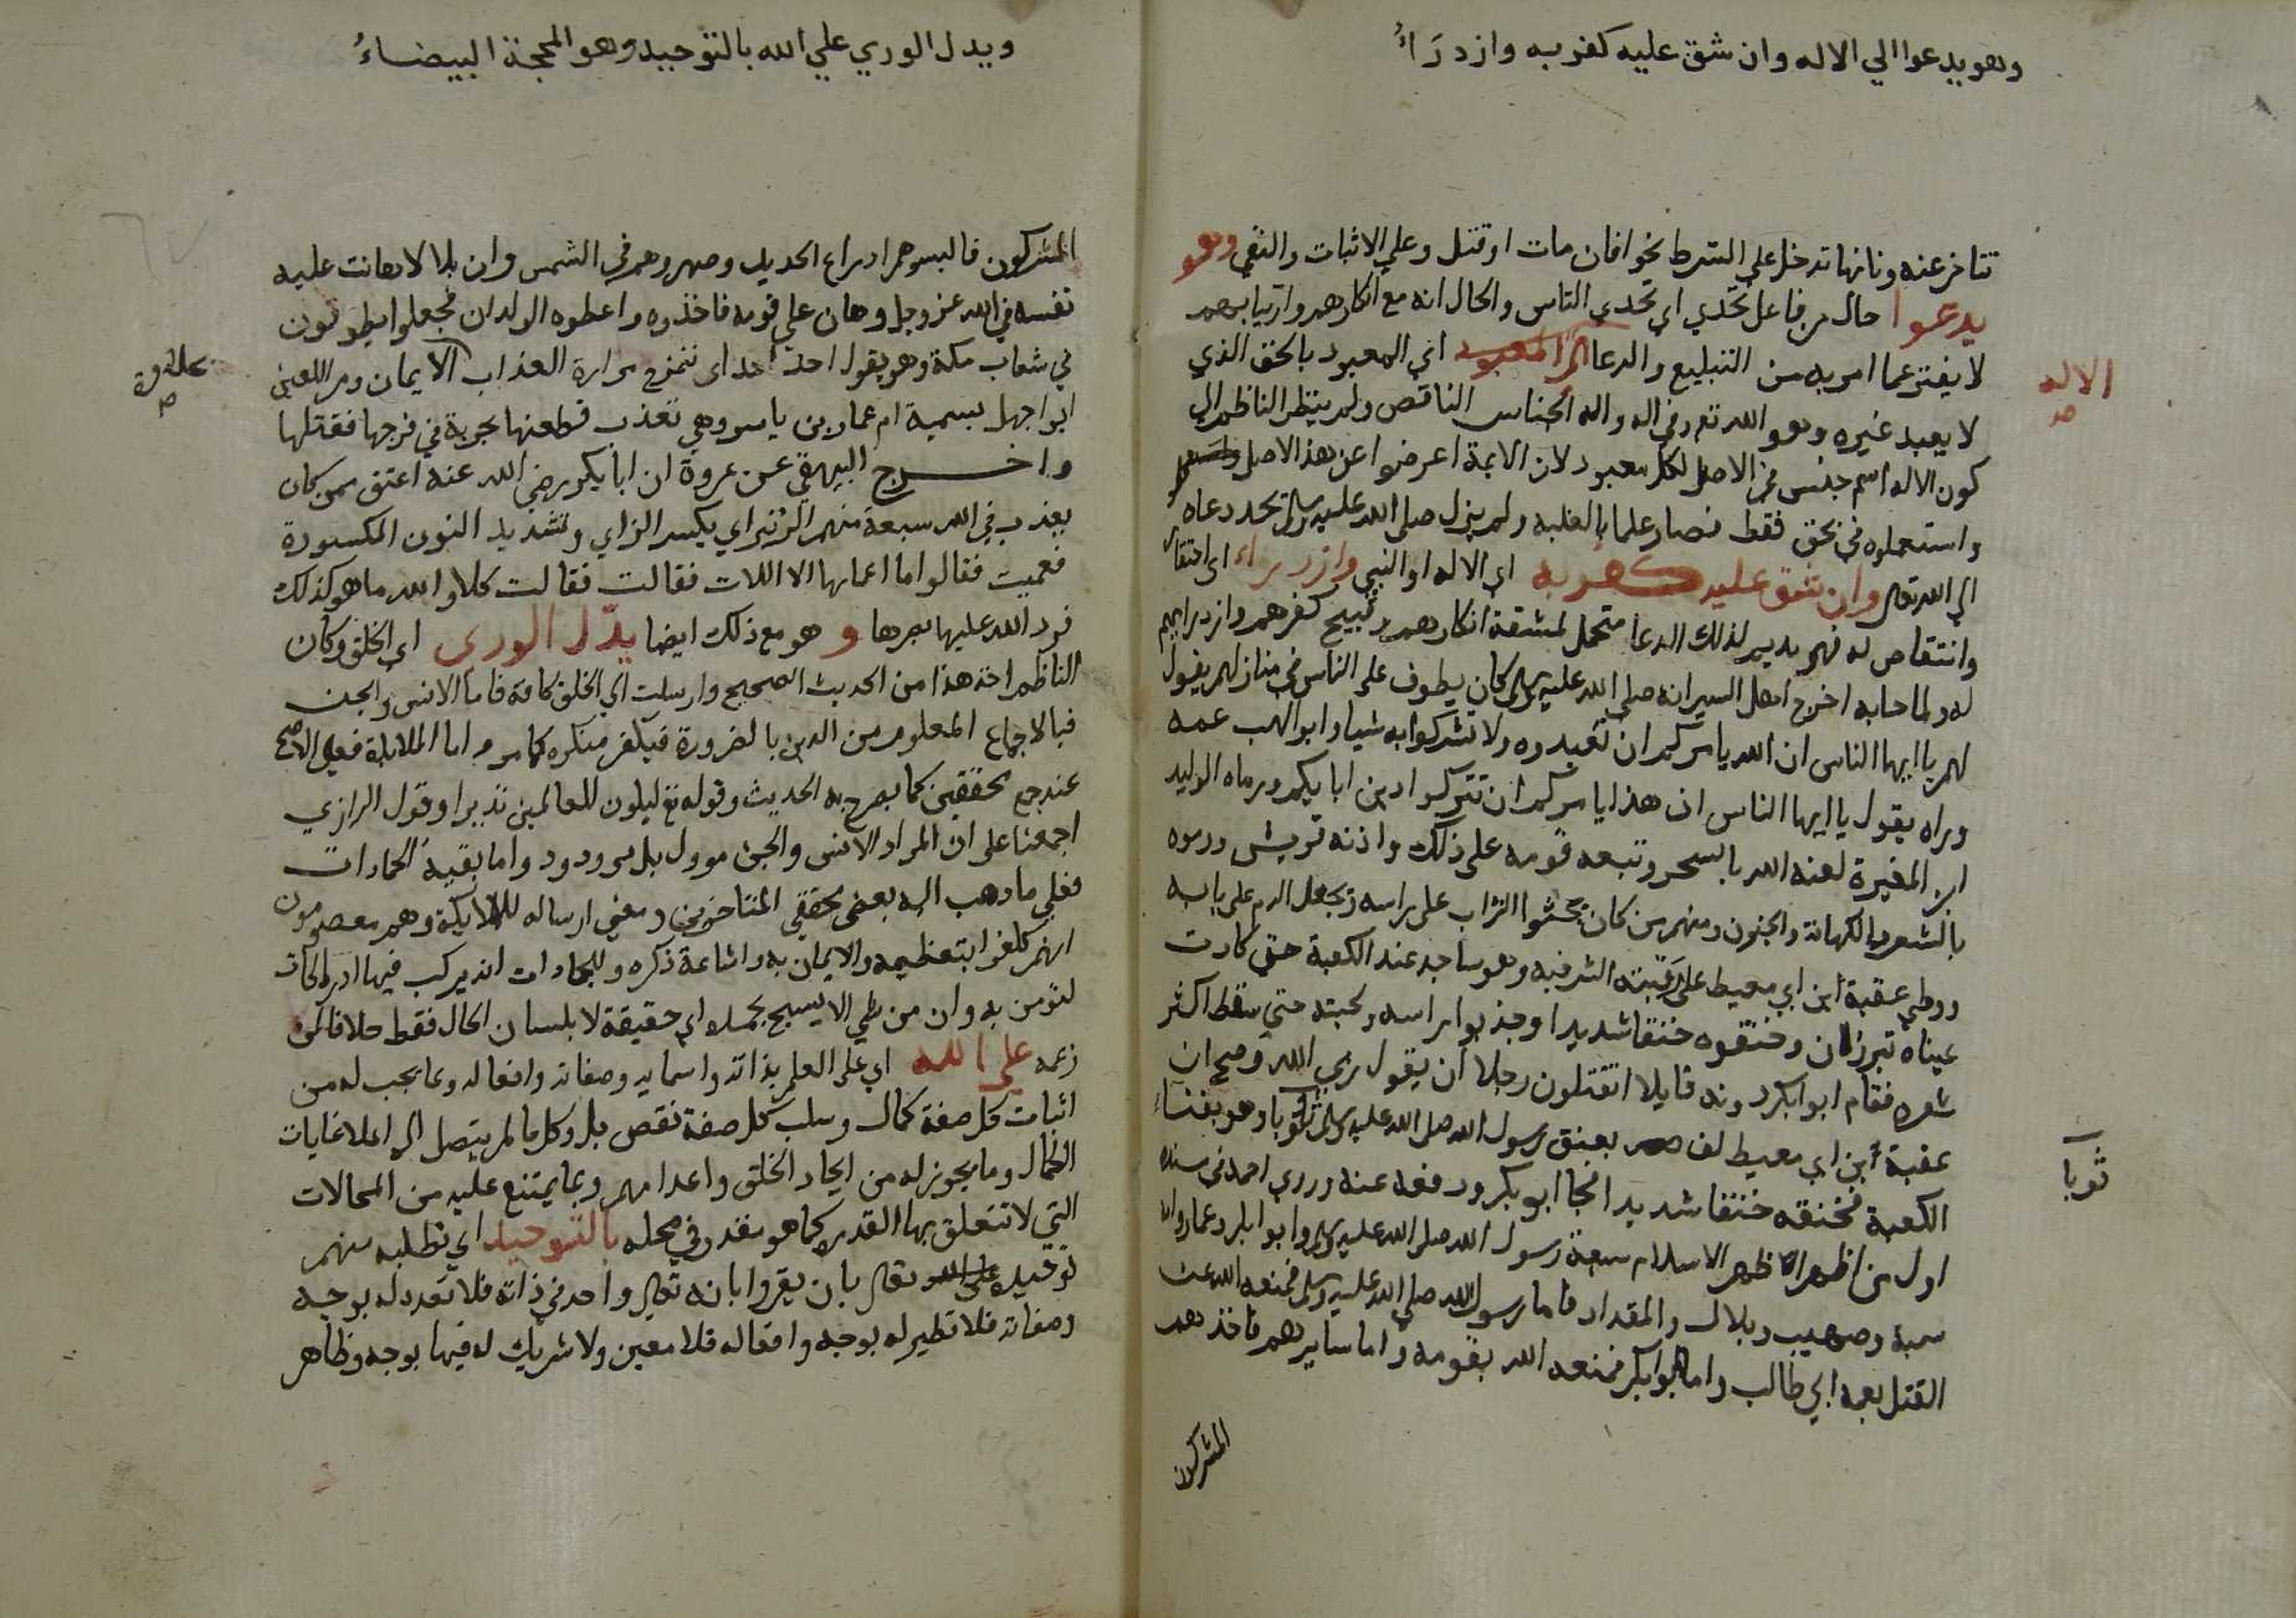 وهو يدعوا الي الاله وان شق عليه كفر به وازدراء
تتاخر عنه وثانيها تدخل علي الشرط نحو افان مات او قتل وعلي الاثبات والنفي وهو
يدعوا حال من فاعل تحدي اي تحدي الناس والحال انه مع انكارهم وارتيابهم
لا يفتر عما امر به من التبليغ والدعا الي المعبود اي المعبود بالحق الذي
الاله
صح
لا يعبد غيره وهو الله تع وفي اله واله الجناس الناقص ولم ينظر الناظم الي
كون الاله اسم جنس في الاصل لكل معبود لان الايمة اعرضوا عن هذا الاصل
واستعملوه في بحق فقط فصار علما بالغلبه ولم يزل صلي الله عليه وسلم يجدد دعاه
الي الله تعالي وان شق عليه كفر به اي الاله او النبي وازدراء اي احتقار
وانتقاص له فهو يديم لذلك الدعا متحمل لمشقة انكارهم وقبيح كفرهم وازدرايهم
له ولما جا به اخرج اهل السير انه صلي الله عليه وسلم كان يطوف علي الناس في منازلهم يقول
لهم يا ايها الناس ان الله يامركم ان تعبدوه ولا تشركوا به شيا وابو الهب عمه
وراه يقول يا ايها الناس ان هذا يامركم ان تتركوا دين ابايكم ورماه الوليد
ابن المغيرة لعنه الله بالسحر وتبعه قومه علي ذلك واذته قريش ورموه
بالشعر والكهانة والجنون ومنهم من كان يحثوا التراب علي راسه ويجعل الدم علي بابه
ووطي عقبة ابن ابي معيط علي رقبته الشريفه وهو ساجد عند الكعبة حتي كادت
عيناه تبرزان وخنقوه خنقا شديدا وجذبوا راسه ولحيته حتي سقط اكثر
شعره فقام ابوا بكر دونه قايلا اتقتلون رجلا ان يقول ربي الله وصح ان
عقبة ابن ابي معيط لف بعنق رسول الله صلي الله عليه وسلم ثوبا وهو بفناء
ثوبا
الكعبة فخنقه خنقا شديدا فجا ابو بكر ودفعه عنه وروي احمد في مسنده
اول من اظهر الاسلام سبعة رسول الله صلي الله عليه وسلم وابوا بكر وعمار وامه
سمية وصهيب وبلال والمقداد فاما رسول الله صلي الله عليه وسلم فمنعه الله عن
القتل بعمه ابي طالب واما ابوا بكر فمنعه الله بقومه واما سايرهم فاخذهم
المشركون
ويدل الوري علي الله بالتوحيد وهو المحجة البيضاء
المشركون فالبسوهم ادراع الحديد وصهروهم في الشمس وان بلالا هانت عليه
نفسه في الله عز وجل وهان علي قومه فاخذوه واعطوه الولدان فجعلوا يطوفون
في شعاب مكة وهو يقول احد احد اي تمزج مرارة العذاب الايمان ومر اللعين
بحلاوة
ابوا جهل بسمية ام عمار بن ياسر وهي تعذب فطعنها بحربة في فرجها فقتلها
واخرج البيهقي عن عروة ان ابا بكر رضي الله عنه اعتق ممن كان
يعذب في الله سبعة منهم الزنيراي بكسر الزاي وتشديد النون المكسورة
فعميت فقالوا ما اعماها الا اللات فقالت فقالت كلا والله ما هو كذلك
فرد الله عليها بصرها و هو مع ذلك ايضا يدل الوري اي الخلق وكان
الناظم اخذ هذا من الحديث الصحيح وارسلت الي الخلق كافة فاما الانس والجن
فبالاجماع المعلوم من الدين بالضرورة فيكفر منكره كما مر واما الملايكة فعلي الاصح
عند جمع محققين كما يصرح به الحديث وقوله تع ليكون للعالمين نذيرا وقول الرازي
اجمعنا علي ان المراد الانس والجن موول بل مردود واما بقية الجمادات
فعلي ما ذهب اليه بعض محققي المتاخرين ومعني ارساله للملايكة وهم معصومون
انهم كلفوا بتعظيمه والايمان به واشاعة ذكره وللجمادات انه يركب فيها ادراكات
لتومن به وان من شي الا يسبح بحمده اي حقيقة لا بلسان الحال فقط خلافا لمن
زعمه علي الله اي علي العلم بذاته واسمايه وصفاته وافعاله وما يجب له من
اثبات كل صفة كمال وسلب كل صفة نقص بل وكل ما لم يتصل الي اعلا غايات
الكمال وما يجوز له من ايجاد الخلق واعدامهم وبما يمتنع عليه من المحالات
التي لا تتعلق بها القدرة كما هو مقدر في محله بالتوحيد اي بطلبه منهم
توحيده تعالي بان يقروا بانه تعالي واحد في ذاته فلا تعدد له بوجه
وصفاته فلا نظير له بوجه وافعاله فلا معين ولا شريك له فيها بوجه وظاهر